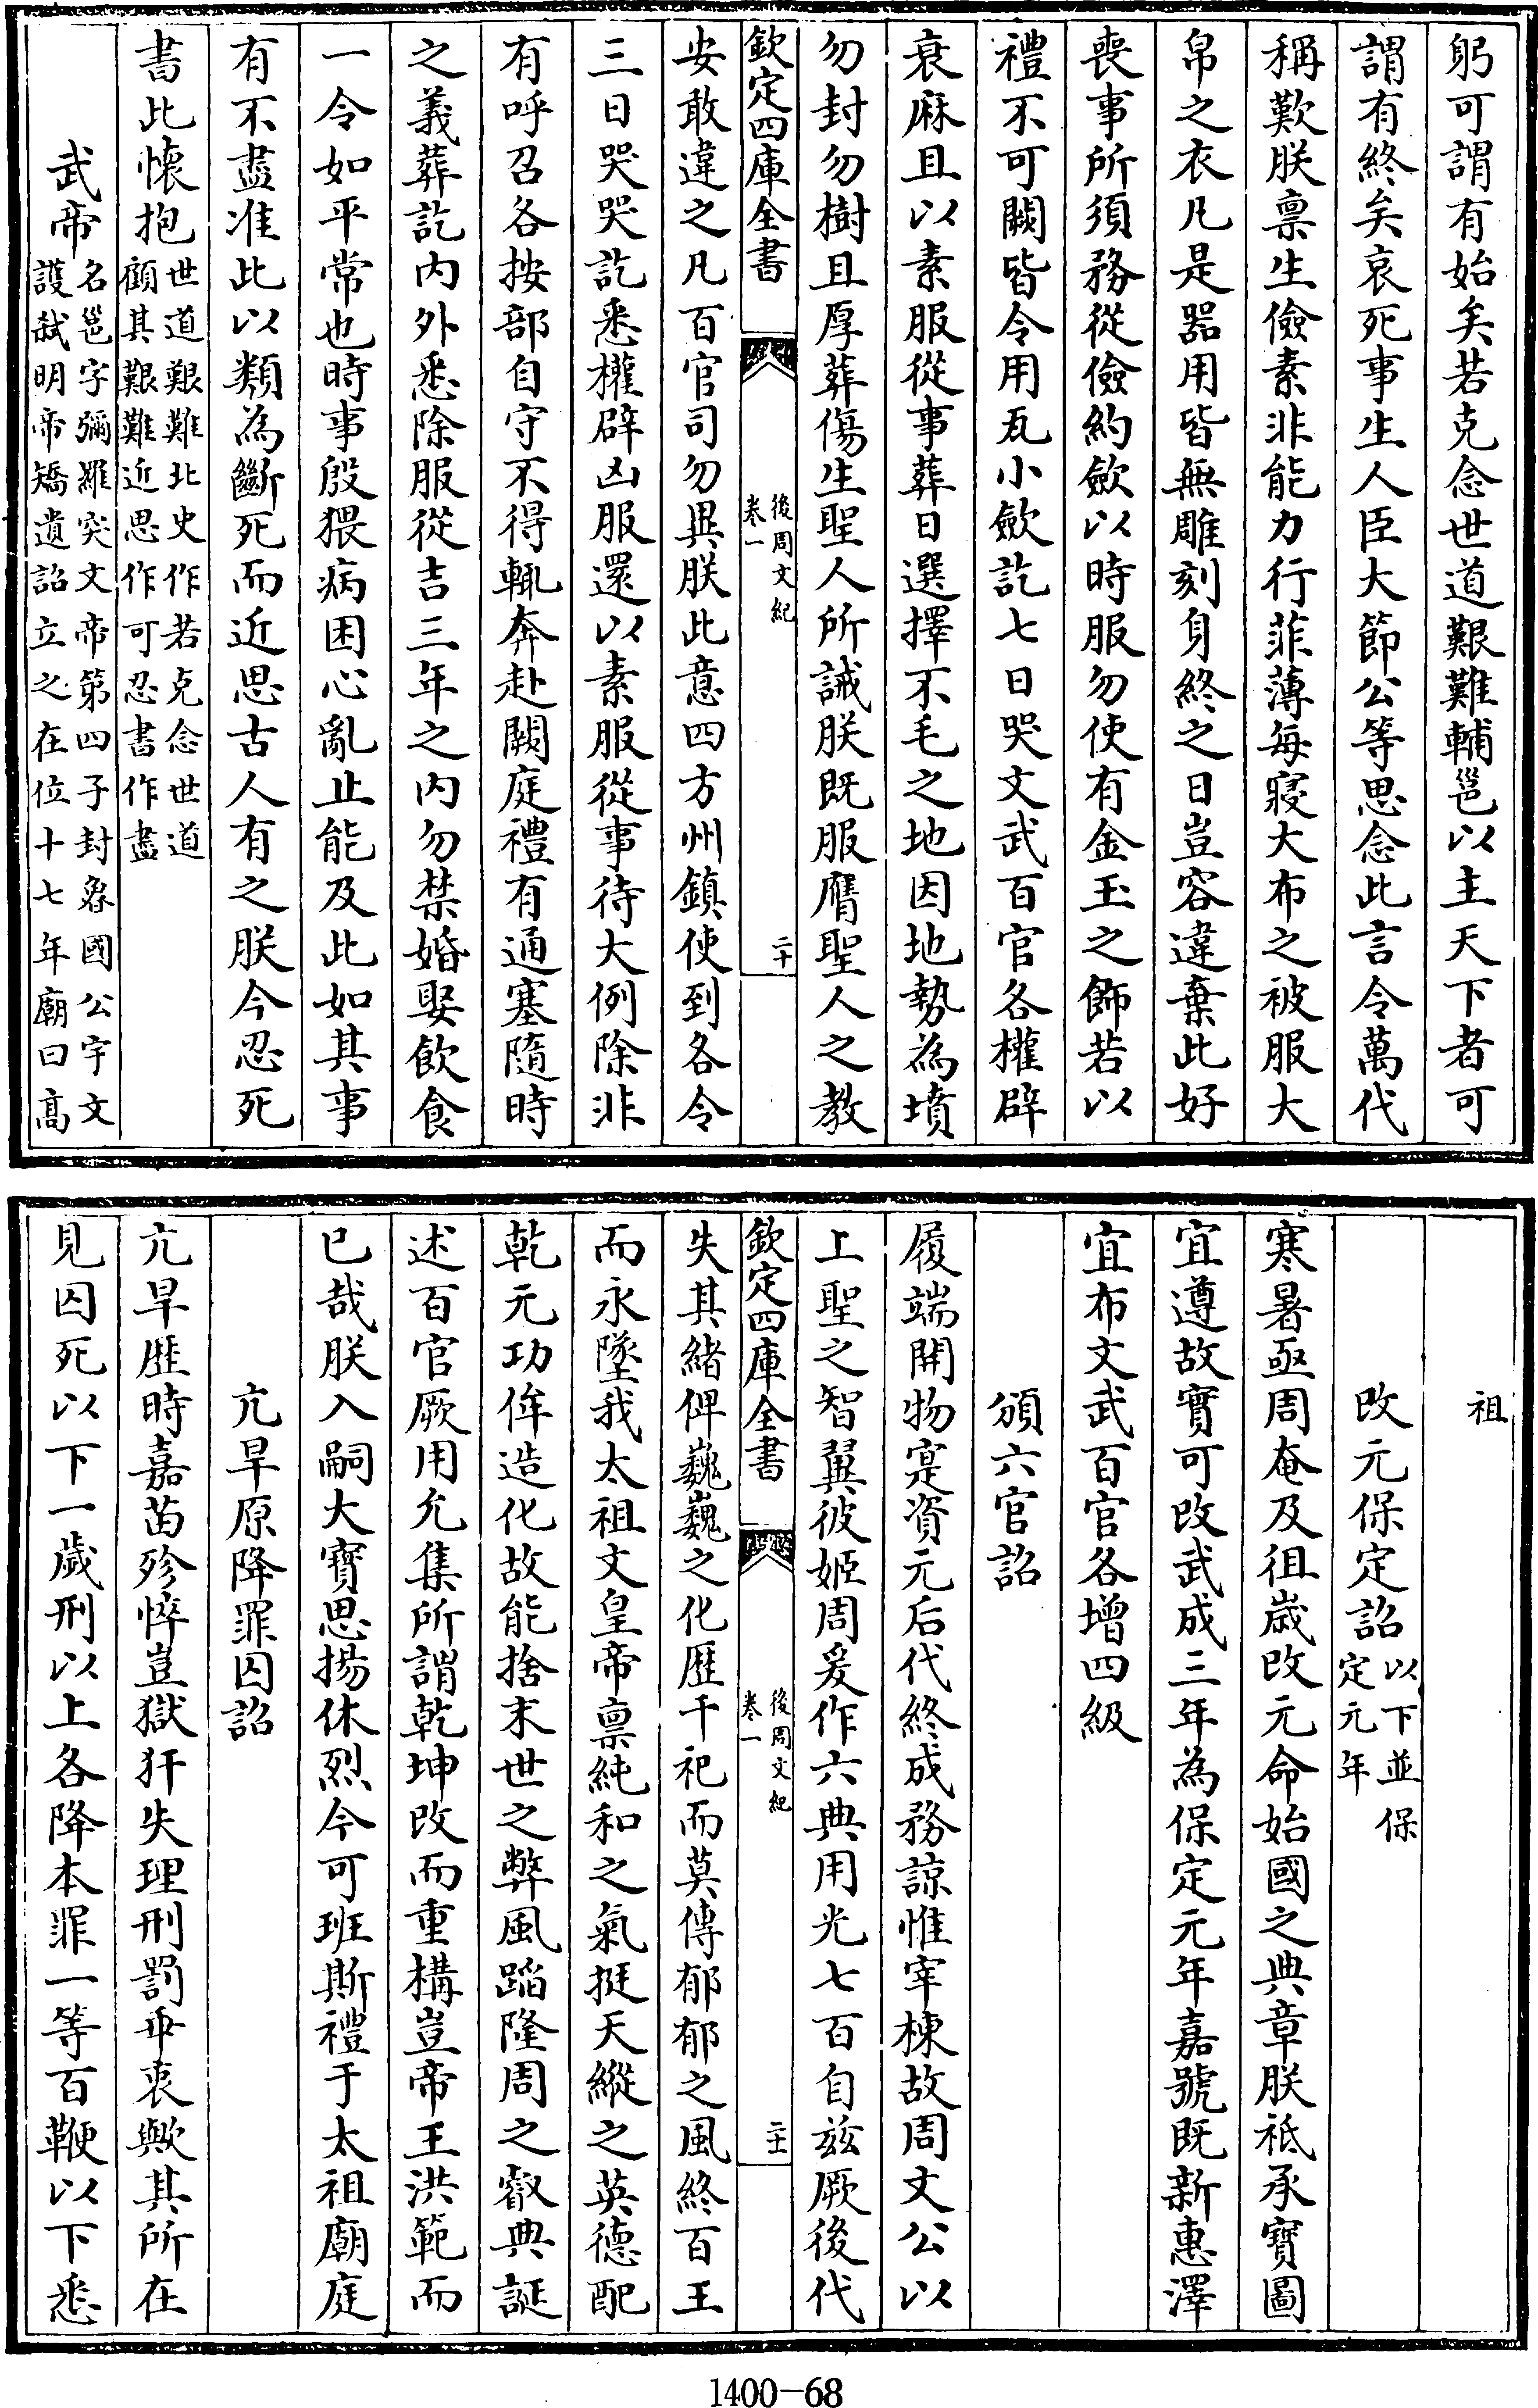 躬可謂有始矣若克念世道艱難輔邕以主天下者可
謂有終矣哀死事生人臣大節公等思念此言令萬代
稱歎朕禀生儉素非能力行菲薄每寢大布之被服大
帛之衣凡是器用皆無雕刻身終之日豈容違棄此好
喪事所須務從儉約斂以時服勿使有金玉之飾若以
禮不可闕皆令用瓦小斂訖七日哭文武百官各權辟
衰麻且以素服從事葬日選擇不毛之地因地勢為墳
勿封勿樹且厚葬傷生聖人所誡朕既服膺聖人之教
欽定四庫全書
後周文紀
卷一
二十
安敢違之凡百官司勿異朕此意四方州鎮使到各令
三日哭哭訖悉權辟凶服還以素服從事待大例除非
有呼召各按部自守不得輒奔赴闕庭禮有通塞隨時
之義葬訖内外悉除服從吉三年之内勿禁婚娶飲食
一令如平常也時事殷猥病困心亂止能及此如其事
有不盡准此以類為斷死而近思古人有之朕今忍死
書此懷抱世道艱難北史作若克念世道
顧其艱難近思作可忍書作盡
武帝名邕字彌羅突文帝第四子封魯國公宇文
護弑明帝矯遺詔立之在位十七年廟曰高
祖
改元保定詔以下並保
定元年
寒暑亟周奄及徂歲改元命始國之典章朕祗承寶圖
宜遵故實可改武成三年為保定元年嘉號既新惠澤
宜布文武百官各增四級
頒六官詔
履端開物寔資元后代終成務諒惟宰棟故周文公以
上聖之智翼彼姬周爰作六典用光七百自兹厥後代
欽定四庫全書
後周文紀
卷一
二十一
失其緒俾巍巍之化歷千祀而莫傳郁郁之風終百王
而永墜我太祖文皇帝禀純和之氣挺天縱之英德配
乾元功侔造化故能捨末世之弊風蹈隆周之叡典誕
述百官厥用允集所謂乾坤改而重構豈帝王洪範而
已哉朕入嗣大寶思揚休烈今可班斯禮于太祖廟庭
亢旱原降罪囚詔
亢旱歷時嘉苗殄悴豈獄犴失理刑罰乖衷歟其所在
見囚死以下一歲刑以上各降本罪一等百鞭以下悉
1400-68